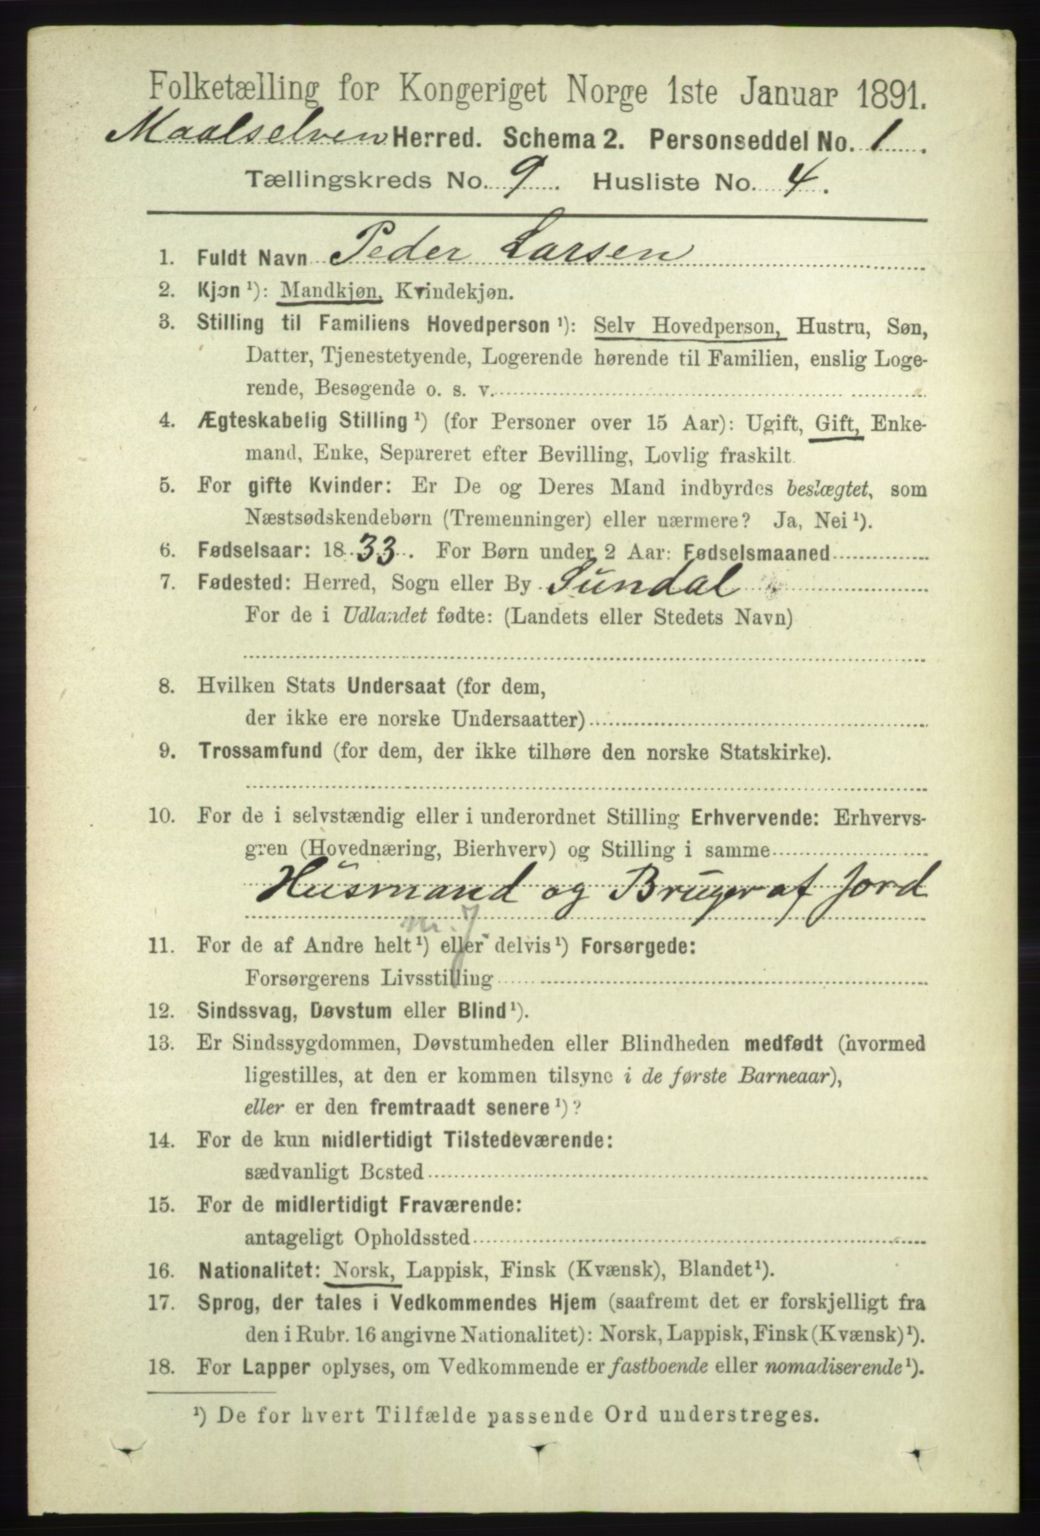 Folketælling for Kongeriget Norge 1ste Januar 1891.
Maalselven Herred. Schema 2. Personseddel No. 1.
Tællingskreds No. 9. Husliste No. 4.
1. Fuldt Navn Peder Larsen
2. Kjøn ¹): Mandkjøn, Kvindekjøn.
3. Stilling til Familiens Hovedperson ¹): Selv Hovedperson, Hustru, Søn,
Datter, Tjenestetyende, Logerende hørende til Familien, enslig Loge-
rende, Besøgende o. s. v.
4. Ægteskabelig Stilling ¹) (for Personer over 15 Aar): Ugift, Gift, Enke-
mand, Enke, Separeret efter Bevilling, Lovlig fraskilt.
5. For gifte Kvinder: Er De og Deres Mand indbyrdes beslægtet, som
Næstsødskendebørn (Tremenninger) eller nærmere? Ja, Nei ¹).
6. Fødselsaar: 1833. For Børn under 2 Aar: Fødselsmaaned
7. Fødested: Herred, Sogn eller By Sundal
For de i Udlandet fødte: (Landets eller Stedets Navn)
8. Hvilken Stats Undersaat (for dem,
der ikke ere norske Undersaatter)
9. Trossamfund (for dem, der ikke tilhøre den norske Statskirke).
10. For de i selvstændig eller i underordnet Stilling Erhvervende: Erhvervs-
gren (Hovednæring, Bierhverv) og Stilling i samme
Husmand og Bruger af Jord
m. J
11. For de af Andre helt ¹) eller delvis ¹) Forsørgede:
Forsørgerens Livsstilling
12. Sindssvag, Døvstum eller Blind ¹).
13. Er Sindssygdommen, Døvstumheden eller Blindheden medfødt (hvormed
ligestilles, at den er kommen tilsyne i de første Barneaar),
eller er den fremtraadt senere ¹)?
14. For de kun midlertidigt Tilstedeværende:
sædvanligt Bosted
15. For de midlertidigt Fraværende:
antageligt Opholdssted
16. Nationalitet: Norsk, Lappisk, Finsk (Kvænsk), Blandet ¹).
17. Sprog, der tales i Vedkommendes Hjem (saafremt det er forskjelligt fra
den i Rubr. 16 angivne Nationalitet): Norsk, Lappisk, Finsk (Kvænsk) ¹).
18. For Lapper oplyses, om Vedkommende er fastboende eller nomadiserende ¹).
¹) De for hvert Tilfælde passende Ord understreges.